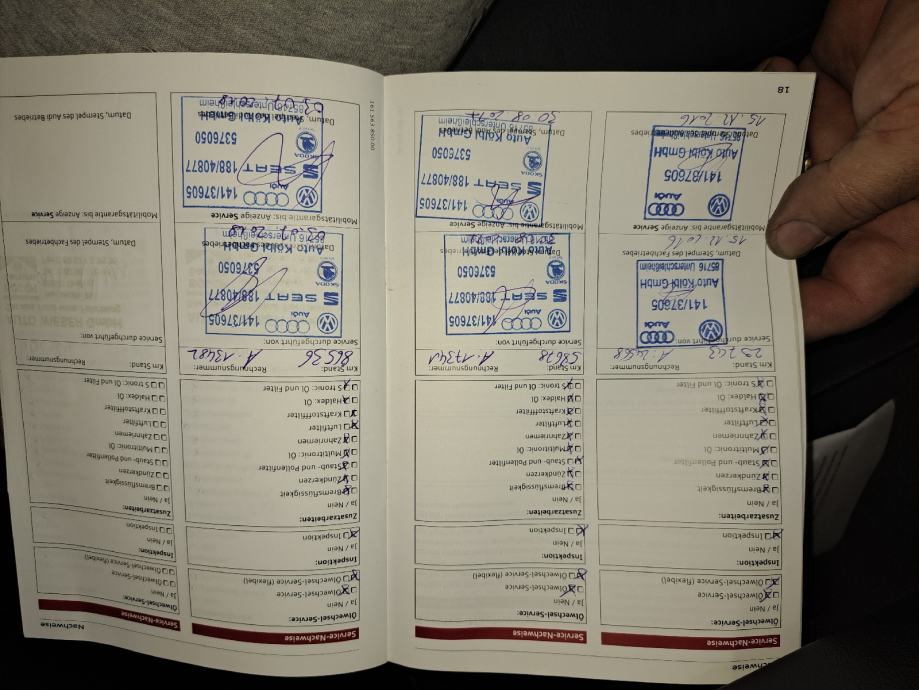 Service-Nachweise
Ölwechsel-Service:
Ja / Nein
Ölwechsel-Service
Ölwechsel (flexibel)
Inspektion:
Ja / Nein
Inspektion
Zusatzarbeiten:
Ja / Nein
Bremsflüssigkeit
Zündkerzen
Staub- und Pollenfilter
Multitronic: Öl
Zahnriemen
Luftfilter
Kraftstofffilter
Haldex: Öl
S tronic: Öl und Filter
Km Stand: Rechnungsnummer:
Service durchgeführt von:
141/37605
Auto Kölbl GmbH
85716 Unterschleißheim
Datum, Stempel des Fachbetriebes
15.12.2016
Mobilitätsgarantie bis: Anzeige Service
141/37605
Auto Kölbl GmbH
85716 Unterschleißheim
15.12.2016
18
Service-Nachweise
Ölwechsel-Service:
Ja / Nein
Ölwechsel-Service
Ölwechsel-Service (flexibel)
Inspektion:
Ja / Nein
Inspektion
Zusatzarbeiten:
Ja / Nein
Bremsflüssigkeit
Zündkerzen
Staub- und Pollenfilter
Multitronic: Öl
Zahnriemen
Luftfilter
Kraftstofffilter
Haldex: Öl
S tronic: Öl und Filter
Km Stand: 58678 Rechnungsnummer: A-17341
Service durchgeführt von:
141/37605
SEAT 188/40877
5376050
Auto Kölbl GmbH
Mobilitätsgarantie bis: Anzeige Service
141/37605
SEAT 188/40877
5376050
SKODA
Auto Kölbl GmbH
85716 Unterschleißheim
Datum, Stempel des Audi Betriebes
Service-Nachweise
Ölwechsel-Service:
Ja / Nein
Ölwechsel-Service
Ölwechsel-Service (flexibel)
Inspektion:
Ja / Nein
Inspektion
Zusatzarbeiten:
Ja / Nein
Bremsflüssigkeit
Zündkerzen
Staub- und Pollenfilter
Multitronic: Öl
Zahnriemen
Luftfilter
Kraftstofffilter
Haldex: Öl
S tronic: Öl und Filter
Km Stand: 86536 Rechnungsnummer: A-13482
Service durchgeführt von:
Audi
141/37605
SEAT 188/40877
5376050
SKODA
Auto Kölbl GmbH
85716 Unterschleißheim
Mobilitätsgarantie bis: Anzeige Service
Audi
141/37605
SEAT 188/40877
5376050
SKODA
Auto Kölbl GmbH
85716 Unterschleißheim
161.563.850.00
Nachweise
Service-Nachweise
Ölwechsel-Service:
Ja / Nein
Ölwechsel-Service
Ölwechsel-Service (flexibel)
Inspektion:
Ja / Nein
Inspektion
Zusatzarbeiten:
Ja / Nein
Bremsflüssigkeit
Zündkerzen
Staub- und Pollenfilter
Multitronic: Öl
Zahnriemen
Luftfilter
Kraftstofffilter
Haldex: Öl
S tronic: Öl und Filter
Km Stand: Rechnungsnummer:
Service durchgeführt von:
Datum, Stempel des Fachbetriebes
Mobilitätsgarantie bis: Anzeige Service
Datum, Stempel des Audi Betriebes